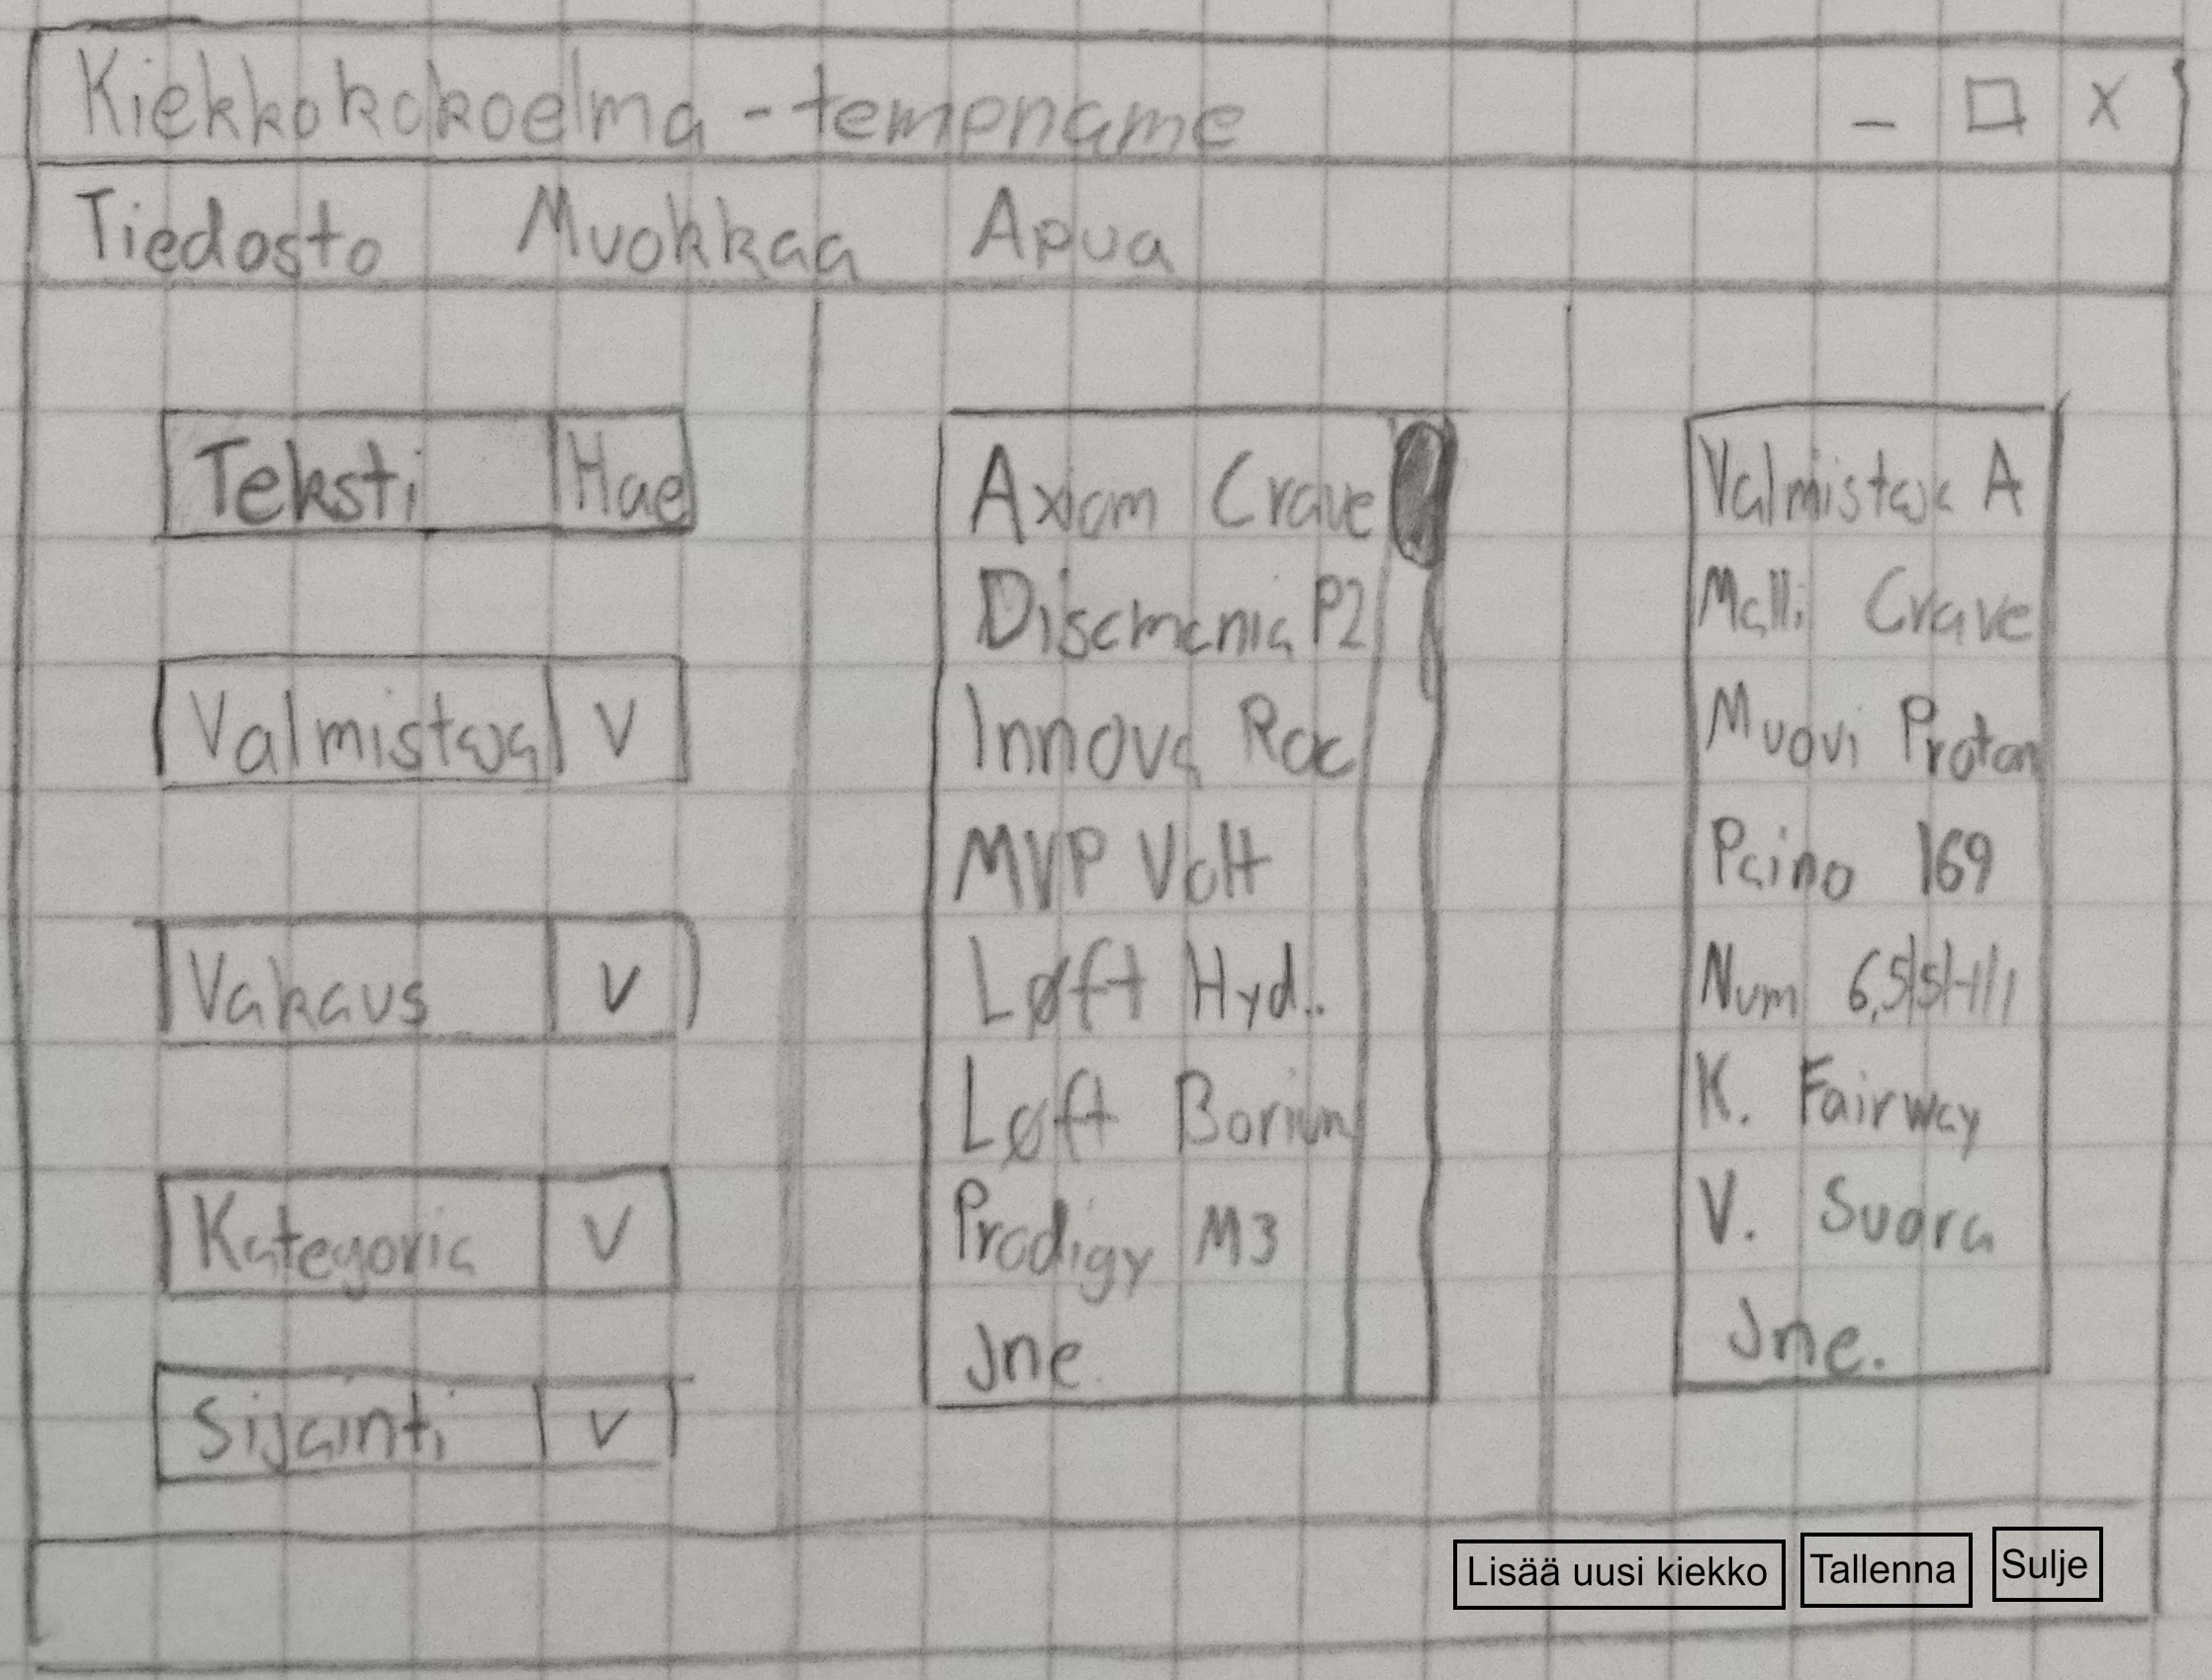 Kiekkokokoelma - tempname _ □ X
Tiedosto Muokkaa Apua
Teksti Hae
Valmistaja V
Vakaus V
Kategoria V
Sijainti V
Axiom Crave
Discmania P2
Innova Roc
MVP Volt
Løft Hyd..
Løft Borium
Prodigy M3
Jne.
Valmistaja A
Malli Crave
Muovi Proton
Paino 169
Num 6,5/5/-1/1
K. Fairway
V. Suora
Jne.
Lisää uusi kiekko Tallenna Sulje